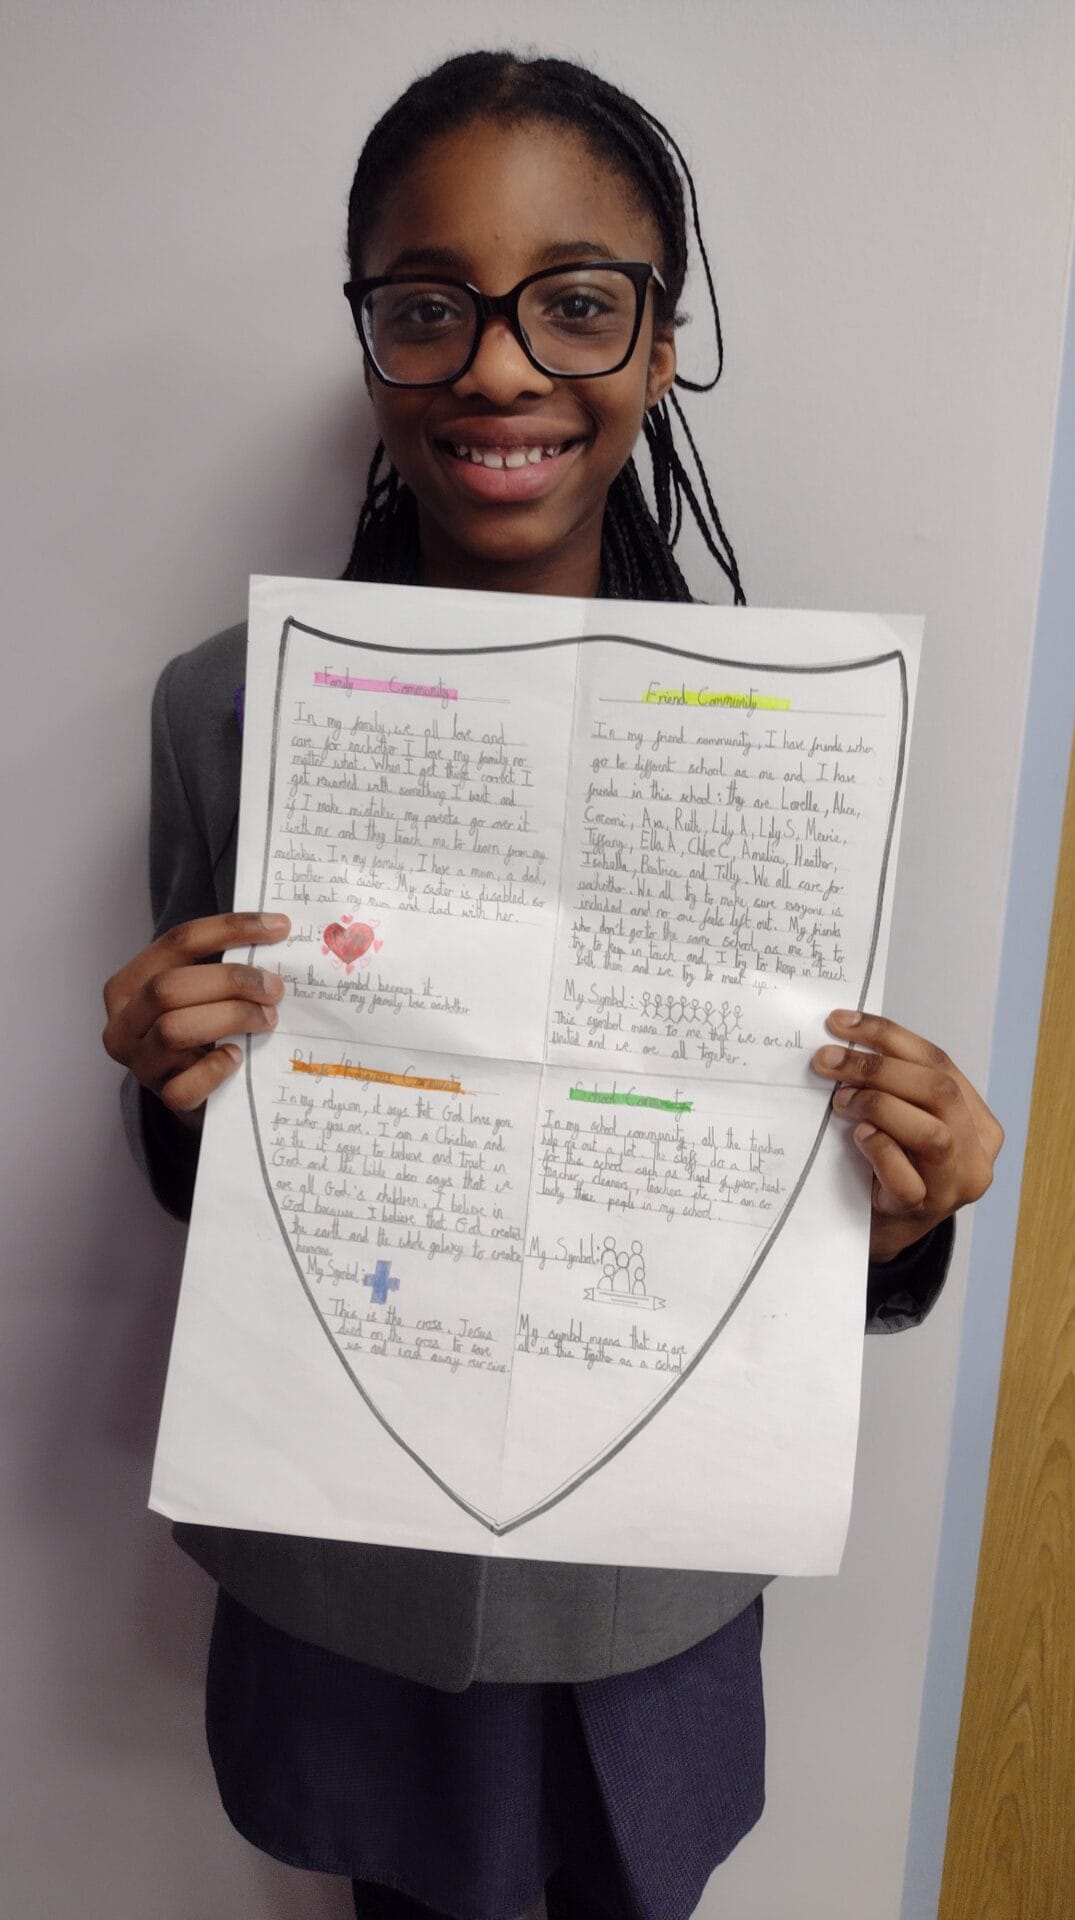 Family Community
In my family, we all love and
care for eachother I love my family no
matter what. When I get things correct I
get rewarded with something I want and
if I make mistakes my parents go over it
with me and they teach me to learn from my
mistakes. In my family, I have a mum, a dad,
a brother and sister. My sister is disabled so
I help out my mum and dad with her.
Symbol:
this symbol because it
how much my family love eachother
Friend Community
In my friend community, I have friends who
go to different school as me and I have
friends in this school: they are Lorelle, Alice,
Cocomi, Ava, Ruth, Lily A, Lily S,
Tiffany, Ella A, Chloe C, Amelia, Heather,
Isabella, Beatrice and Tilly. We all care for
eachother. We all try to make sure everyone is
included and no one feels left out. My friends
who don't go to the same school as me try to
try to keep in touch and I try to keep in touch
with them and we try to meet up.
My Symbol:
This symbol means to me that we are all
united and we are all together.
Community
In my religion, it says that God loves you
for who you are. I am a Christian and
in the it says to believe and trust in
God and the bible also says that we
are all God's children. I believe in
God because I believe that God created
the earth and the whole galaxy to create
humans.
My Symbol:
This is the cross. Jesus
died on the cross to save
us and wash away our sins.
School Community
In my school community, all the teachers
help me out a lot. The staff do a lot
for this school such as head of year, head-
teacher, cleaners, teachers etc. I am so
lucky these people in my school.
My Symbol:
My symbol means that we are
all in this together as a school